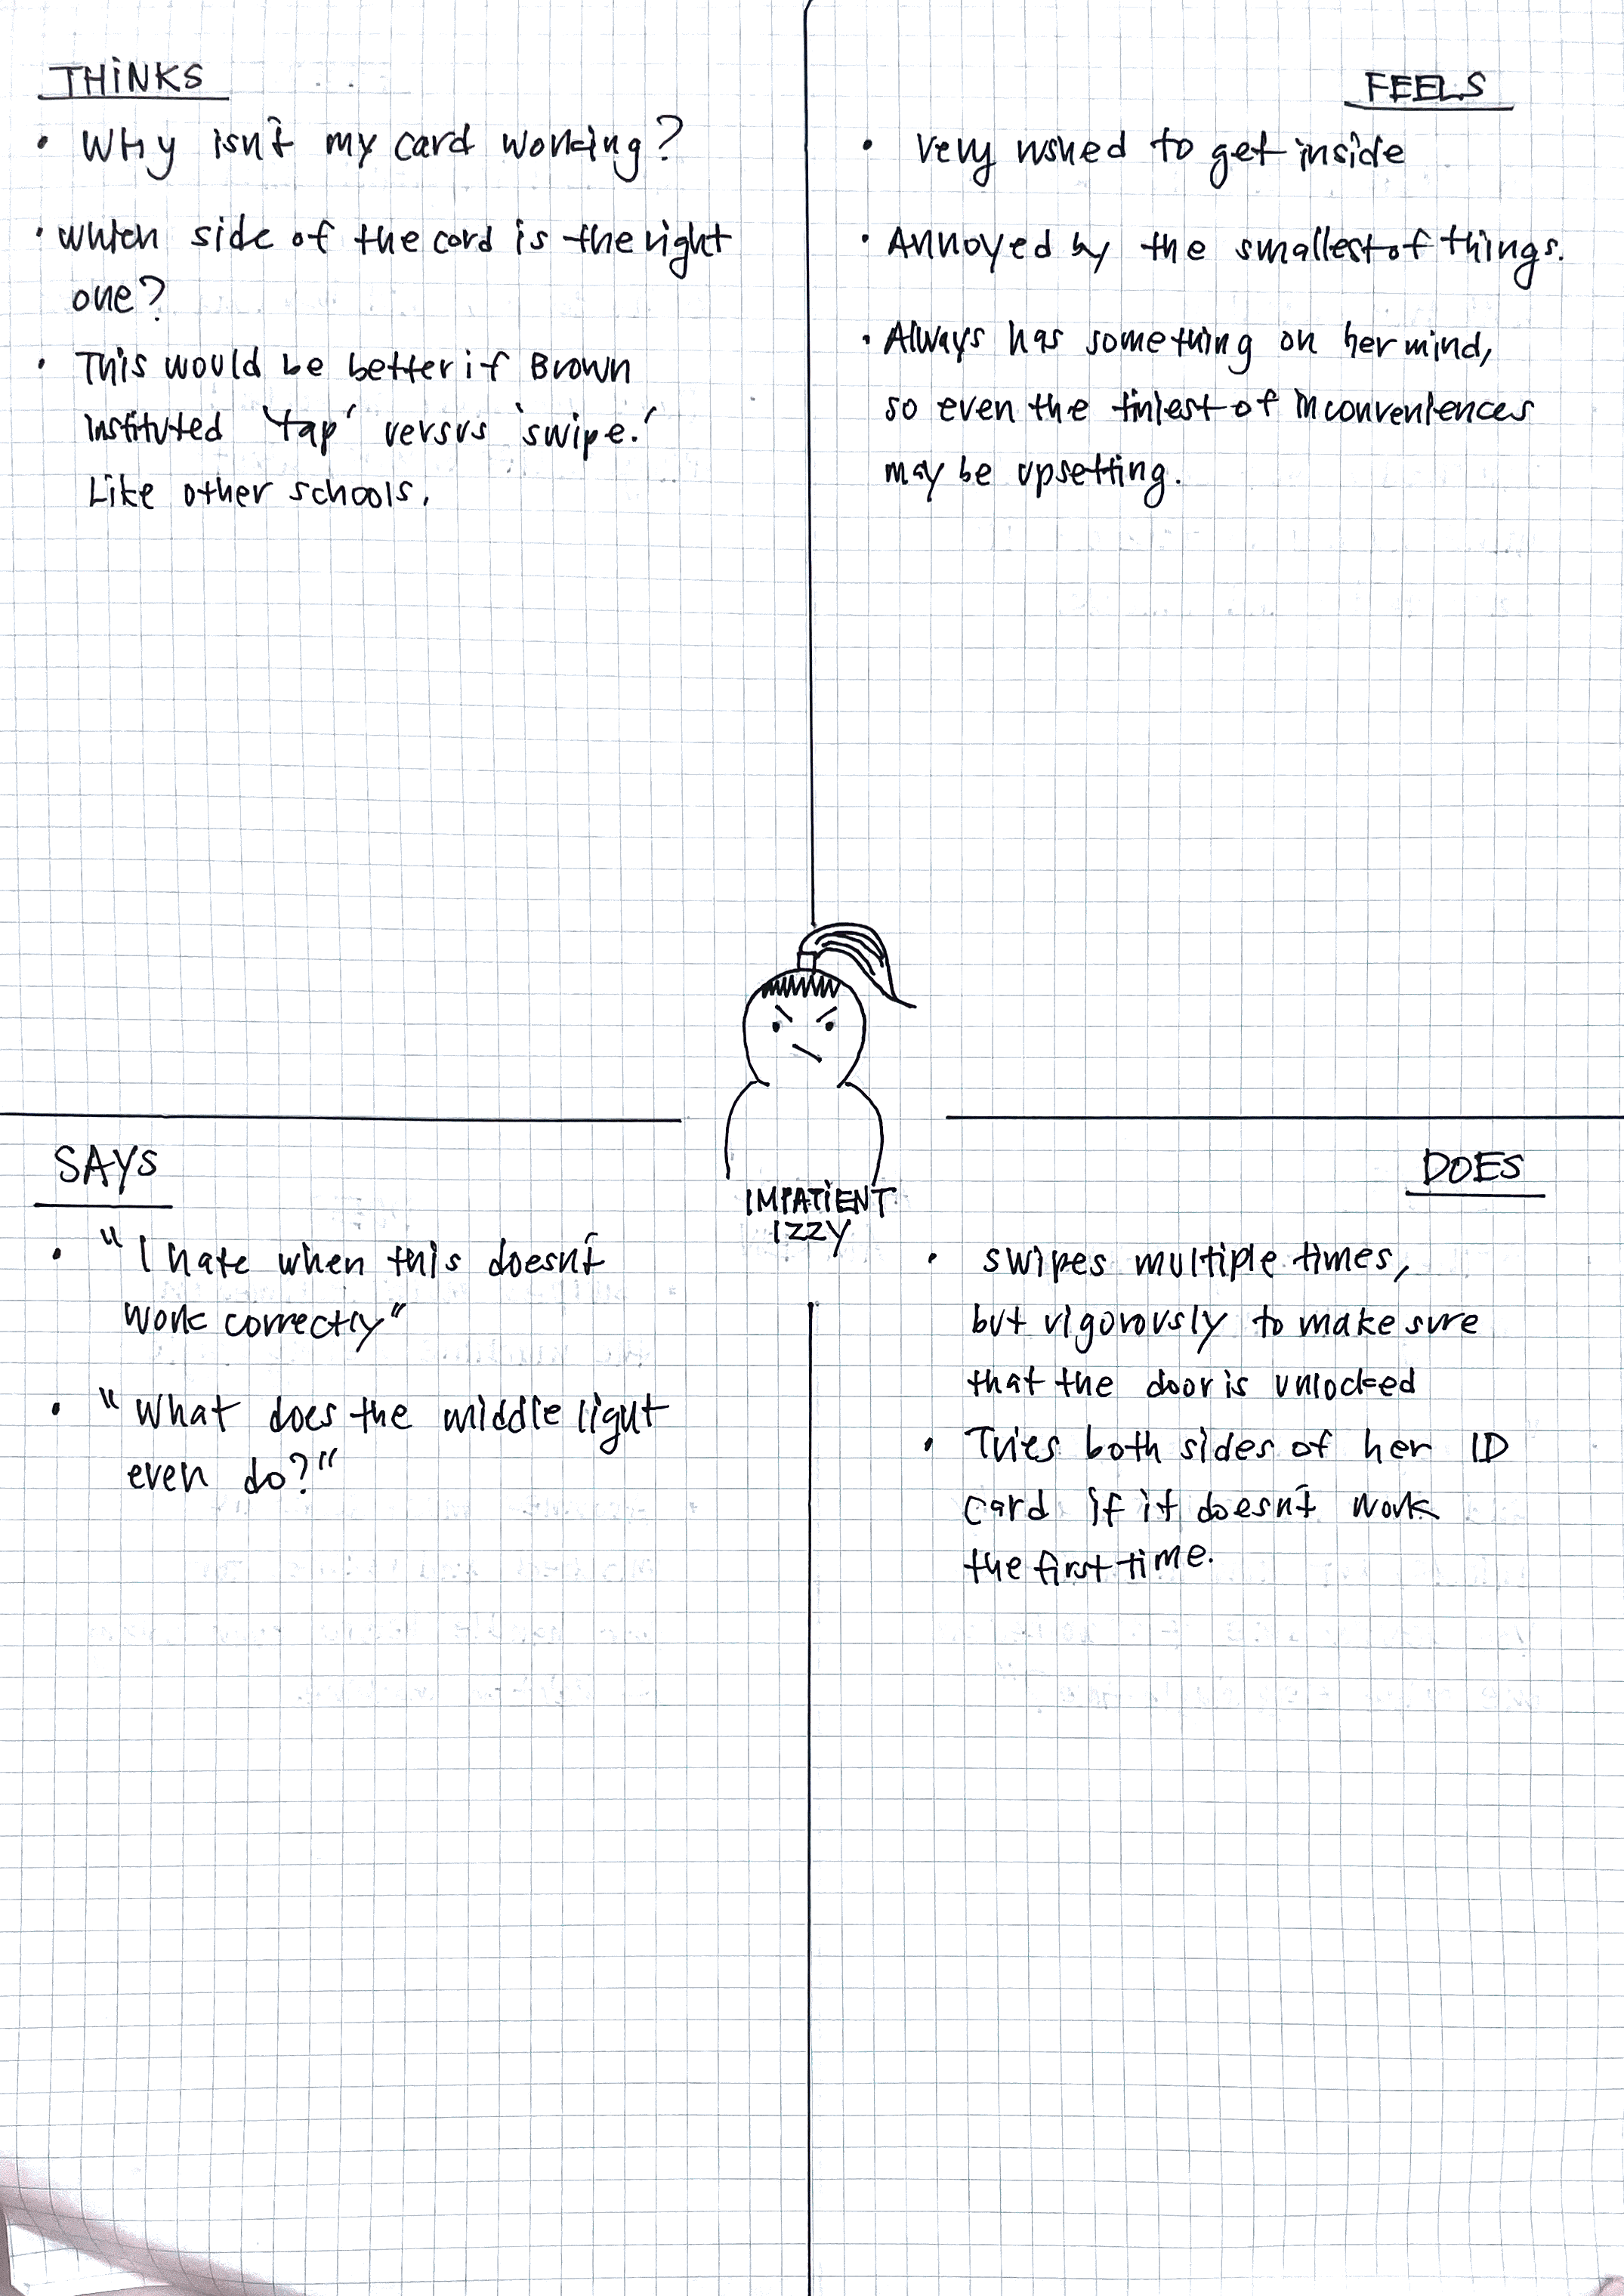 THINKS
• Why isn't my card working?
• which side of the card is the right
one?
• This would be better if Brown
instituted 'tap' versus 'swipe.'
Like other schools.
FEELS
• very rushed to get inside
• Annoyed by the smallest of things.
• Always has something on her mind,
so even the tiniest of inconveniences
may be upsetting.
IMPATIENT
IZZY
SAYS
• "I hate when this doesn't
work correctly"
• "What does the middle light
even do?"
DOES
• swipes multiple times,
but vigorously to make sure
that the door is unlocked
• Tries both sides of her ID
card if it doesn't work
the first time.